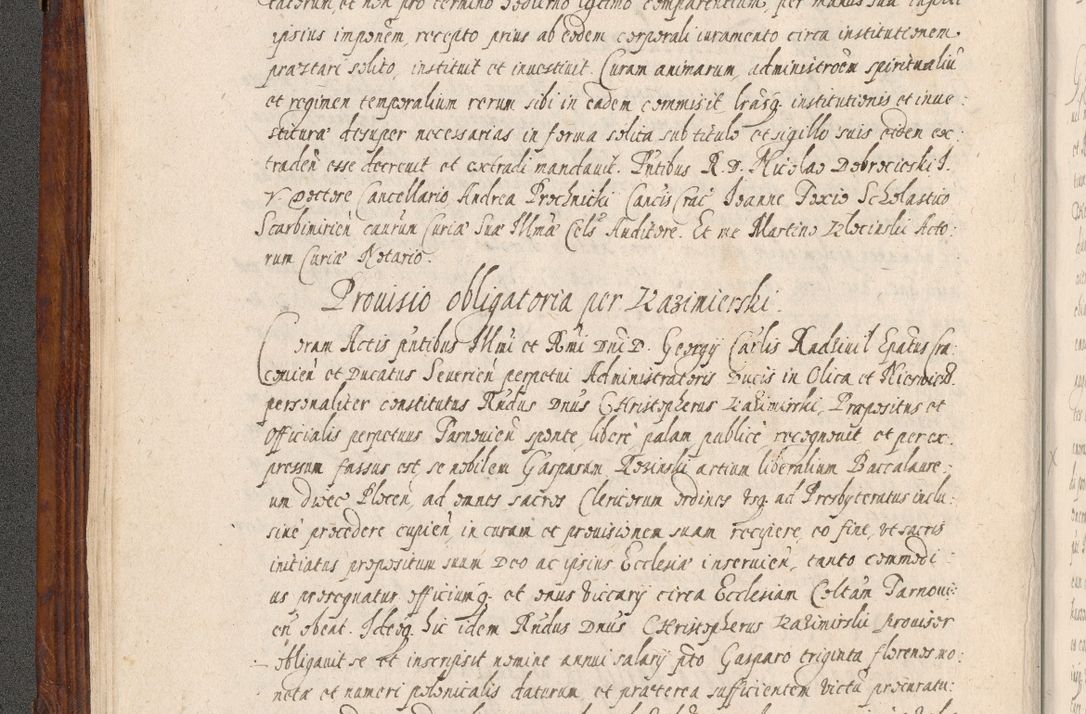 tatorum, et non pro termino hodierno legitimo comparentium, per manus sua capiti
ipsius imponem, recepto prius ab eodem corporali iuramento circa institutionem
præstari solito, instituit et inuestiuit. Curam animarum, administroem spiritualiu
et regimen temporalium rerum sibi in eadem commisit lrasq institutionis et inue:
stituræ desuper necessarias in forma solita sub titulo et sigillo suis eidem ex:
traden esse decreuit et extradi mandauit. Pntibus R. D. Nicolao Dobrocieski I.
V. Doctore Cancellario Andrea Prochnicki Cancis Crac Ioanne Foxio Scholastico
Scarbimirien caurum Curiæ Suæ Illmæ Cels Auditore. Et me Martino Klocinski Acto:
rum Curiæ Notario.
Prouisio obligatoria per Kazimierski.
Coram Actis pntibus Illmi et Rmi Dni D. Georgij Carlis Radziuil Epatus Cra:
couien et Ducatus Seuerien perpetui Administratoris Ducis in Olica et Nieswiesz
personaliter constitutus Rndus Dnus Christopherus Kazimirski, Præpositus et
Officialis perpetuus Tarnouien sponte, libere, palam publice recognouit et per ex:
pressum fassus est, se nobilem Gasparum Kosinski artium liberalium Baccalaure:
um Diæc Plocen, ad omnes sacros Clericorum ordines vsq ad Presbyteratus inclu:
siue procedere cupien, in curam et prouisionem suam recipere, eo fine, vt sacris
initiatus propositum suum Deo ac ipsius Ecclesiæ inseruien, tanto commodi:
us prosequatur officiumq et onus Viccarij circa Ecclesiam Coltam Tarnoui:
en obeat. Ideoq hic idem Rndus Dnus Christopherus Kazimirski prouisor
obligauit se et inscripsit nomine annui salarij pto Gasparo triginta florenos mo:
netæ et numeri polonicalis daturum et præterea sufficientem victu procuratu: